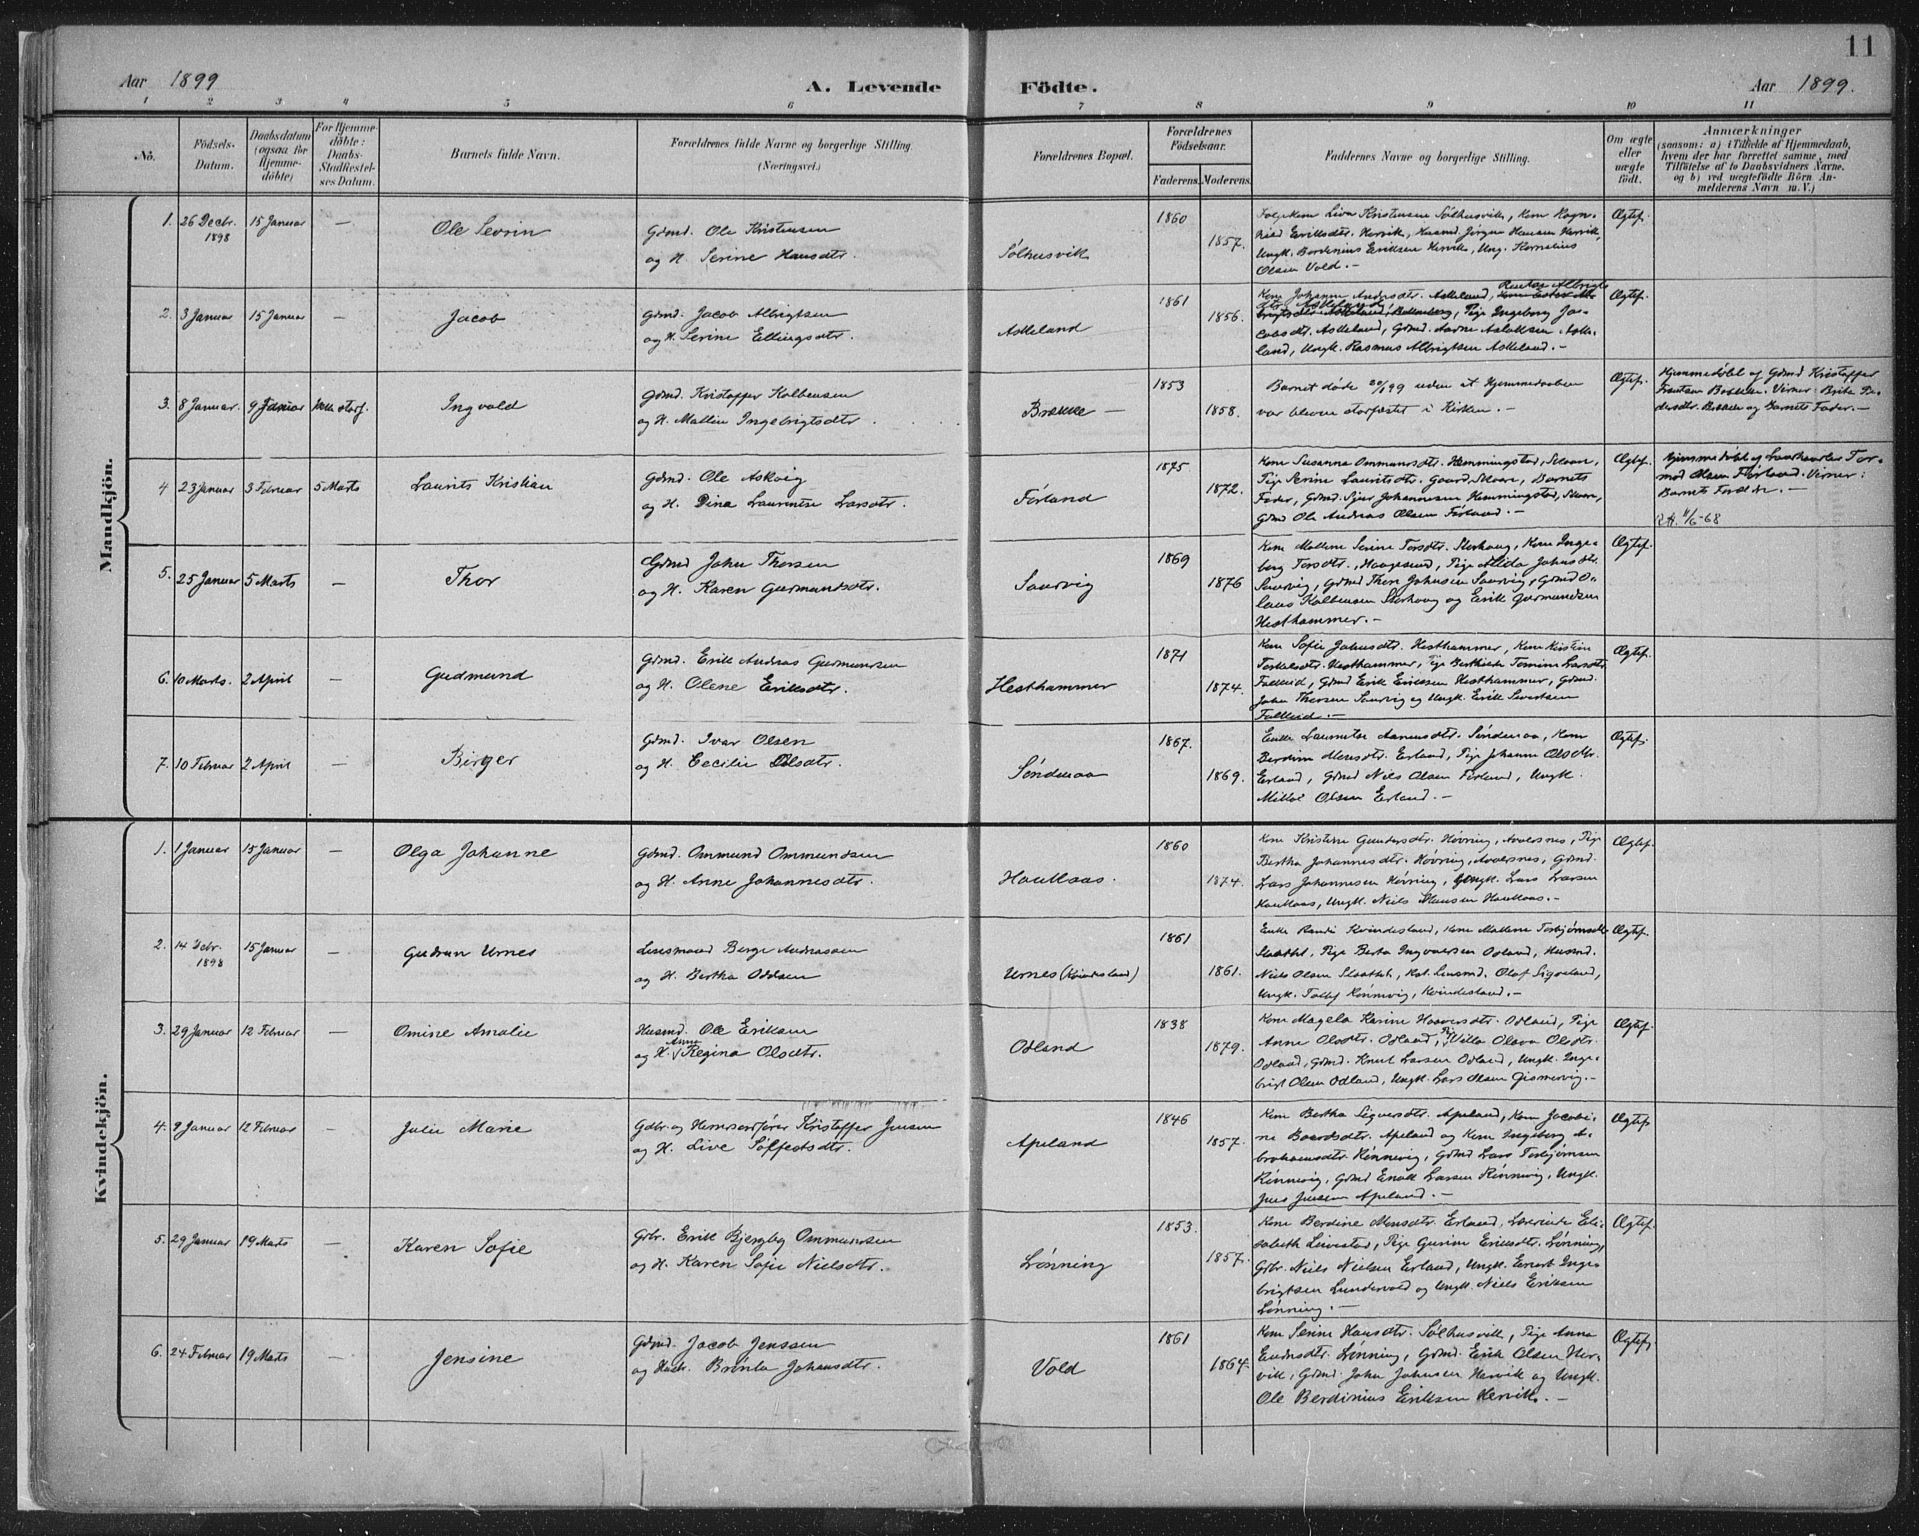 11
Aar 1899 A. Levende Födte. Aar 1899.
1 2 3 4 5 6 7 8 9 10 11
No. Födsels-Datum. Daabsdatum (ogsaa for Hjemme-döbte) For Hjemme-döbte: Daabs-Stadfæstel-ses Datum. Barnets fulde Navn. Forældrenes fulde Navne og borgerlige Stilling. (Næringsvei.) Forældrenes Bopæl. Forældrenes Födselsaar. Faderens. Moderens. Faddernes Navne og borgerlige Stilling. Om ægte eller uægte födt.
Anmærkninger
(saasom: a) i Tilfælde af Hjemmedaab,
hvem der har forrettet samme, med
Tilföielse af to Daabsvidners Navne.
og b) ved uægtefödte Börn An-
melderens Navn m. V.)
Mandkjön.
1. 26 Decbr. 1898 15 Januar — Ole Sevrin
Gdmd. Ole Kristensen
og H. Serine Hansdtr.
Sølhusvik 1860 1857.
Kristensen Sølhusvik, Kone Ragn-
hild Eriksdtr. Hervik, Husmd. Jørgen Hansen Hervik,
Ungk. Berdinius Eriksen Hervik, Ung. Kornelius
Olsen Vold. —
Ægtef.
2. 3 Januar 15 Januar — Jacob
Gdmd. Jacob Albrigtsen
og H. Serine Ellingsdtr.
Askeland 1861 1856.
Kone Johanne Andersdtr. Askeland, Albrigts-
dtr. Askeland, Pige Ingeborg Ja-
cobsdtr. Askeland, Gdmd. Aslaksen Aske-
land, Ungk. Rasmus Albrigtsen Askeland. —
Ægtef.
3. 8 Januar. 9 Januar Ikke stadf. Ingvald
Gdmd. Kristoffer Kolbensen
og H. Malline Ingebrigtsdtr.
Brekke — 1853 1858.
Barnet døde 20/1 99 uden at Hjemmedaaben
var bleven stadfæstet i Kirken. —
Ægtef.
Hjemmedøbt af Gdmd Kristoffer
Brekke og Barnets Fader. —
4 23 Januar 3 Februar 5 Marts Laurits Kristian
Gdmd. Ole Askvig
og H. Dina Laurentse Larsdtr.
Førland 1875 1872.
Kone Susanna Ommundsdtr. Hemmingstad, Skaare,
Pige Serine Lauritsdtr. Gaard, Skaare, Barnets
Fader, Gdmd. Sjur Johannesen Hemmingstad, Skaare,
Gdmd Ole Andreas Olsen Førland. —
Ægtef.
Hjemmedøbt af Tor-
mod Olsen Førland. Vidner:
Barnets Forældre. —
R.A. 11/6-68
5. 25 Januar 5 Marts — Thor
Gdmd John Thorsen
og H. Karen Gudmundsdtr.
Saurvig 1869 1876
Kone Mallene Serine Torsdtr. Storhaug, Kone Inge-
borg Torsdtr., Haugesund, Pige Alida Johnsdtr.
Saurvig, Gdmd Thore Johnsen Saurvig, Gdmd O-
laus Kolbensen Storhaug og Erik Gudmundsen
Hesthammer. —
Ægtef.
6. 10 Marts. 2 April — Gudmund
Gdmd. Erik Andreas Gudmundsen
og H. Olene Eriksdtr.
Hesthammer 1871 1874.
Kone Sofie Johnsdtr. Hesthammer, Kone Kristine
Torkelsdtr. Hesthammer, Pige Berthine Tomine Larsdtr.
Falkeid, Gdmd Erik Eriksen Hesthammer, Gdmd.
John Thorsen Saurvig og Ungk. Erik Sivertsen
Falkeid. —
Ægtef.
7. 10 Februar 2 April — Birger
Gdmd. Ivar Olsen
og H. Cecilie Olsdtr.
Søndenaa 1867. 1869.
Søndenaa, Kone
Berdine Monsdtr. Erland, Pige Johanne Olsdtr.
Erland, Gdmd Niels Olsen Førland, Ungk.
Mikkel Olsen Erland. —
Ægtef.
Kvindekjön.
1. 1 Januar 15 Januar — Olga Johanne
Gdmd. Ommund Ommundsen
og H. Anne Johannesdtr.
Haukaas. 1860 1874.
Kone Kristine Gundersdtr. Høvring, Avalsnes, Pige
Bertha Johannesdtr. Høvring, Avalsnes, Gdmd.
Lars Johannesen Høvring, Ungk. Lars Larsen
Haukaas, Ungk. Niels Hansen Haukaas. —
Ægtef.
2. 14 Debr. 1898 15 Januar — Gudrun Urnes
Lensmand Berge Andreassen
og H. Bertha Oddsen
Urnes (Kvindesland) 1861 1861.
Enke Randi Kvindesland, Kone Mallene Torbjørnsdtr.
Slaattet, Pige Berta Ingvarsen Odland, Husmd.
Niels Olsen Slaattet, Kst. Lensmd. Olaf Sigveland,
Ungk. Tollef Rønnevig, Kvindesland. —
Ægtef.
3. 29 Januar 12 Februar — Omine Amalie
Husmd. Ole Eriksen
og H. Anne Regina Olsdtr.
Odland 1838 1879.
Kone Magela Karine Haaversdtr. Odland, Pige
Anne Olsdtr. Odland, Pige Villa Olava Olsdtr.
Odland, Gdmd. Knut Larsen Odland, Ungk. Inge-
brigt Olsen Odland, Ungk. Lars Olsen Gismervig. —
Ægtef.
4. 9 Januar 12 Februar — Julie Marie
Gdbr. og Kristoffer Jensen
og H. Live Sølfestsdtr.
Apeland 1846 1857.
Kone Bertha Sigversdtr. Apeland, Kone Jacobi-
ne Baardsdtr. Apeland og Kone Ingeborg A-
brahamsdtr. Rønnevig, Gdmd Lars Torbjørnsen
Rønnevig, Gdmd Enok Larsen Rønnevig, Ungk.
Jens Jensen Apeland. —
Ægtef.
5. 29 Januar 19 Marts — Karen Sofie
Grbr. Erik Bjergby Ommundsen
og H. Karen Sofie Nielsdtr.
Lønning 1853 1857.
Kone Berdine Monsdtr. Erland, Lærerinde Eli-
sabeth Livestad, Pige Gurine Eriksdtr. Lønning,
Grbr. Niels Nielsen Erland, Ungk. Einert Inge-
brigtsen Lundervold og Ungk. Niels Eriksen
Lønning. —
Ægtef.
6. 24 Februar 19 Marts — Jensine
Gdmd. Jacob Jenssen
og Brønla Johansdtr.
Vold 1861 1864.
Kone Serine Hansdtr. Sølhusvik, Pige Anna
Endresdtr. Lønning, Gdmd. Erik Olsen Her-
vik, Gdmd. John Johnsen Hervik og Ungk.
Ole Berdinius Eriksen Hervik. —
Ægtef.